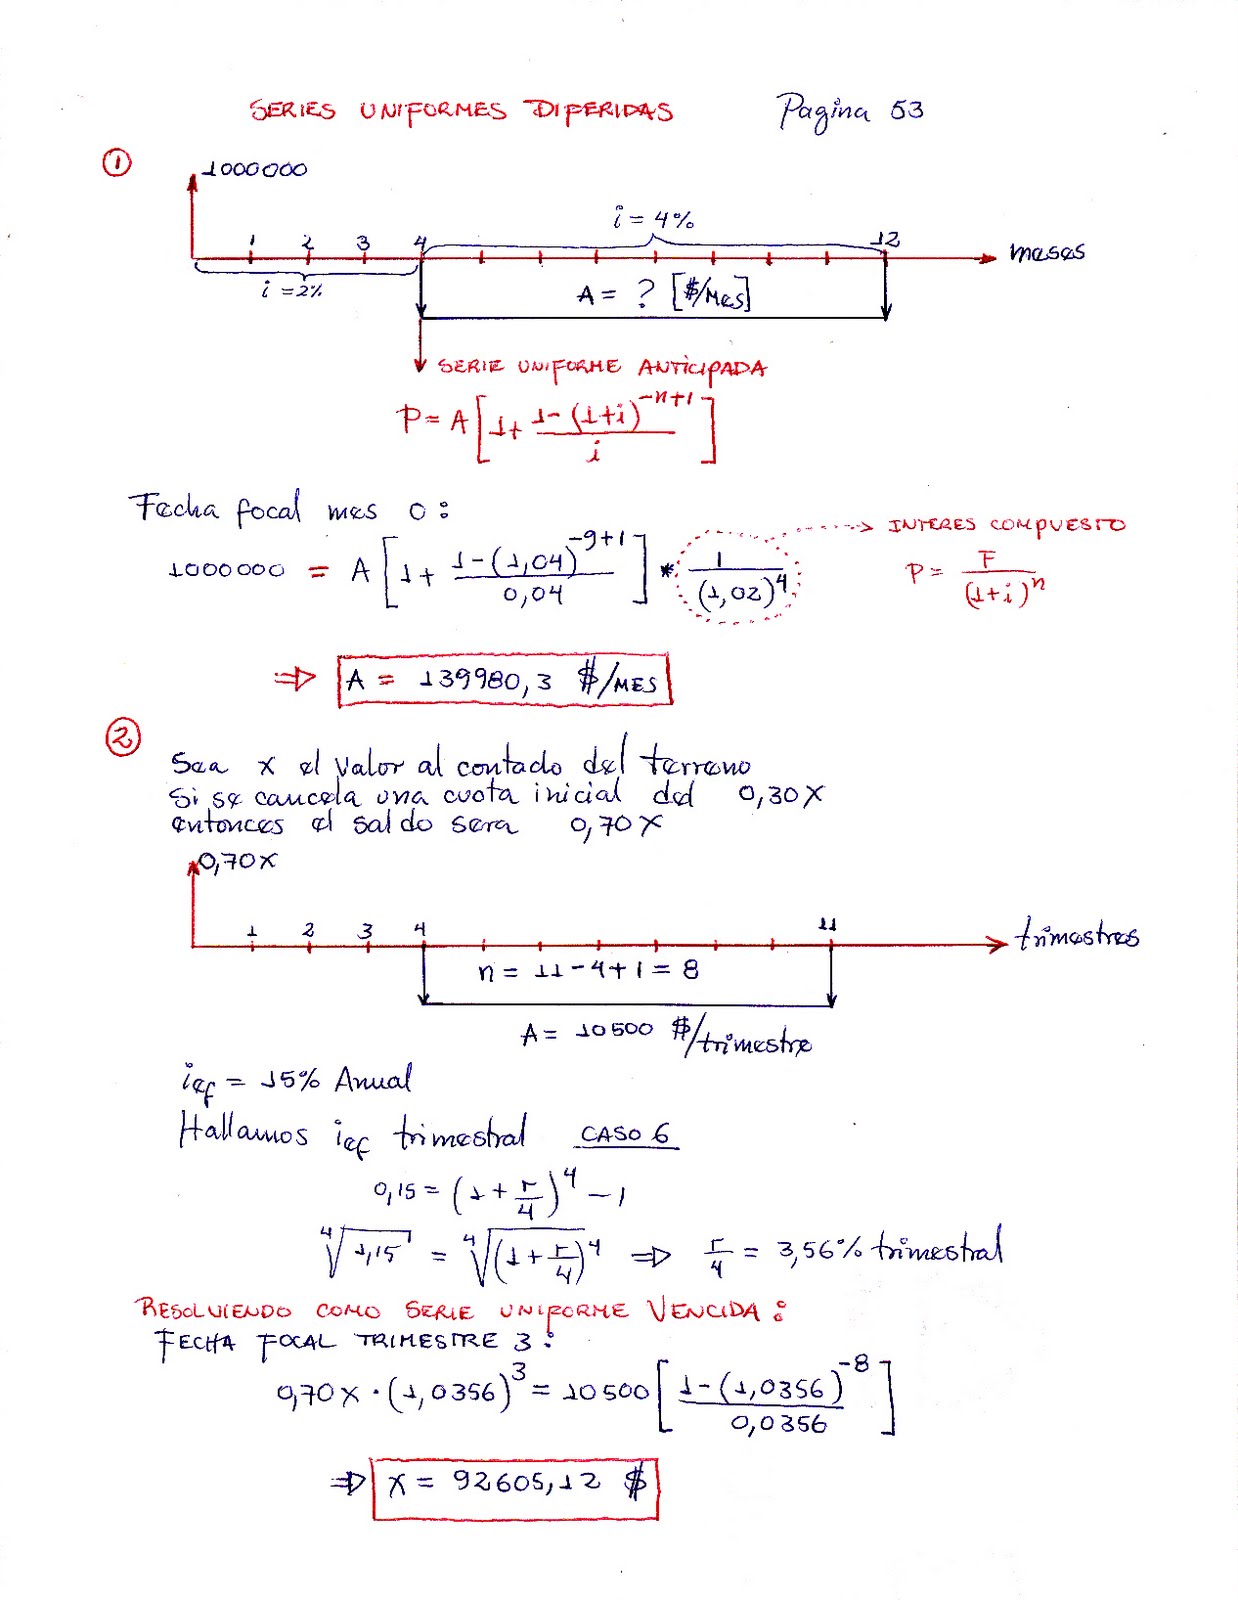 SERIES UNIFORMES DIFERIDAS Pagina 53
①
1000000
i = 4%
1 2 3 4 12 meses
i = 2%
A = ? [$/MES]
SERIE UNIFORME ANTICIPADA
P = A [1 + (1-(1+i)^(-n+1))/i]
Fecha focal mes 0:
1000000 = A [1 + (1-(1,04)^(-9+1))/0,04] * 1/(1,02)^4
INTERES COMPUESTO
P = F/(1+i)^n
⇒ A = 139980,3 $/MES
②
Sea x el valor al contado del terreno
Si se cancela una cuota inicial del 0,30X
entonces el saldo sera 0,70X
0,70X
1 2 3 4 11 trimestres
n = 11-4+1 = 8
A = 10500 $/trimestre
ief = 15% Anual
Hallamos ief trimestral CASO 6
0,15 = (1 + r/4)^4 - 1
⁴√1,15 = ⁴√(1 + r/4)^4 ⇒ r/4 = 3,56% trimestral
RESOLVIENDO COMO SERIE UNIFORME VENCIDA:
FECHA FOCAL TRIMESTRE 3:
0,70X · (1,0356)^3 = 10500 [(1-(1,0356)^-8)/0,0356]
⇒ X = 92605,12 $